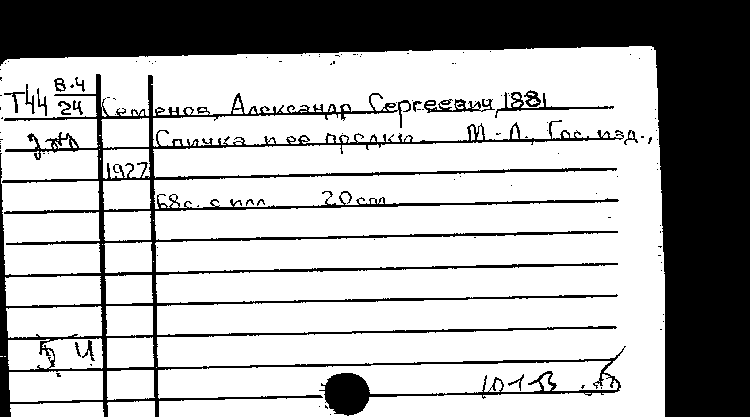 Т44 В.4
24
Семенов, Александр Сергеевич, 1881
Спичка и ее предки. М.-Л., Гос. изд.,
1927
68с. с илл. 20 см.